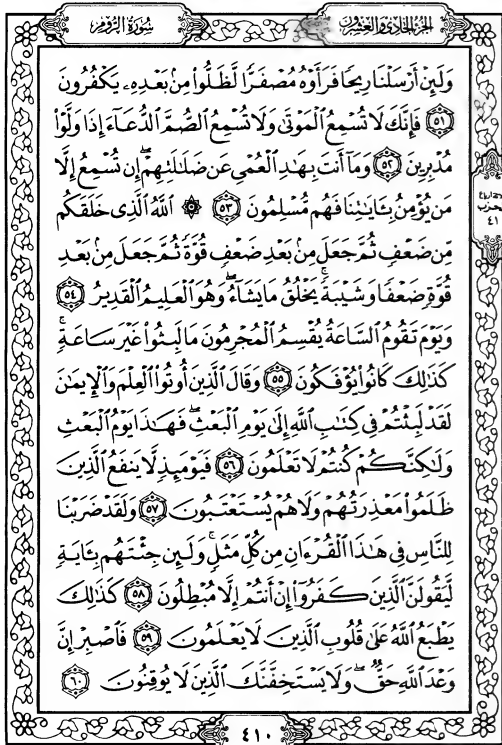 الجزء الحادي والعشرون
سورة الروم
وَلَئِنْ أَرْسَلْنَا رِيحًا فَرَأَوْهُ مُصْفَرًّا لَّظَلُّوا۟ مِنۢ بَعْدِهِۦ يَكْفُرُونَ
٥١ فَإِنَّكَ لَا تُسْمِعُ ٱلْمَوْتَىٰ وَلَا تُسْمِعُ ٱلصُّمَّ ٱلدُّعَآءَ إِذَا وَلَّوْا۟
مُدْبِرِينَ ٥٢ وَمَآ أَنتَ بِهَٰدِ ٱلْعُمْىِ عَن ضَلَٰلَتِهِمْ ۖ إِن تُسْمِعُ إِلَّا
مَن يُؤْمِنُ بِـَٔايَٰتِنَا فَهُم مُّسْلِمُونَ ٥٣ ۞ ٱللَّهُ ٱلَّذِى خَلَقَكُم
مِّن ضَعْفٍ ثُمَّ جَعَلَ مِنۢ بَعْدِ ضَعْفٍ قُوَّةً ثُمَّ جَعَلَ مِنۢ بَعْدِ
قُوَّةٍ ضَعْفًا وَشَيْبَةً ۚ يَخْلُقُ مَا يَشَآءُ ۖ وَهُوَ ٱلْعَلِيمُ ٱلْقَدِيرُ ٥٤
وَيَوْمَ تَقُومُ ٱلسَّاعَةُ يُقْسِمُ ٱلْمُجْرِمُونَ مَا لَبِثُوا۟ غَيْرَ سَاعَةٍ ۚ
كَذَٰلِكَ كَانُوا۟ يُؤْفَكُونَ ٥٥ وَقَالَ ٱلَّذِينَ أُوتُوا۟ ٱلْعِلْمَ وَٱلْإِيمَٰنَ
لَقَدْ لَبِثْتُمْ فِى كِتَٰبِ ٱللَّهِ إِلَىٰ يَوْمِ ٱلْبَعْثِ ۖ فَهَٰذَا يَوْمُ ٱلْبَعْثِ
وَلَٰكِنَّكُمْ كُنتُمْ لَا تَعْلَمُونَ ٥٦ فَيَوْمَئِذٍ لَّا يَنفَعُ ٱلَّذِينَ
ظَلَمُوا۟ مَعْذِرَتُهُمْ وَلَا هُمْ يُسْتَعْتَبُونَ ٥٧ وَلَقَدْ ضَرَبْنَا
لِلنَّاسِ فِى هَٰذَا ٱلْقُرْءَانِ مِن كُلِّ مَثَلٍ ۚ وَلَئِن جِئْتَهُم بِـَٔايَةٍ
لَّيَقُولَنَّ ٱلَّذِينَ كَفَرُوٓا۟ إِنْ أَنتُمْ إِلَّا مُبْطِلُونَ ٥٨ كَذَٰلِكَ
يَطْبَعُ ٱللَّهُ عَلَىٰ قُلُوبِ ٱلَّذِينَ لَا يَعْلَمُونَ ٥٩ فَٱصْبِرْ إِنَّ
وَعْدَ ٱللَّهِ حَقٌّ ۖ وَلَا يَسْتَخِفَّنَّكَ ٱلَّذِينَ لَا يُوقِنُونَ ٦٠
حزب
٤١
٤١٠